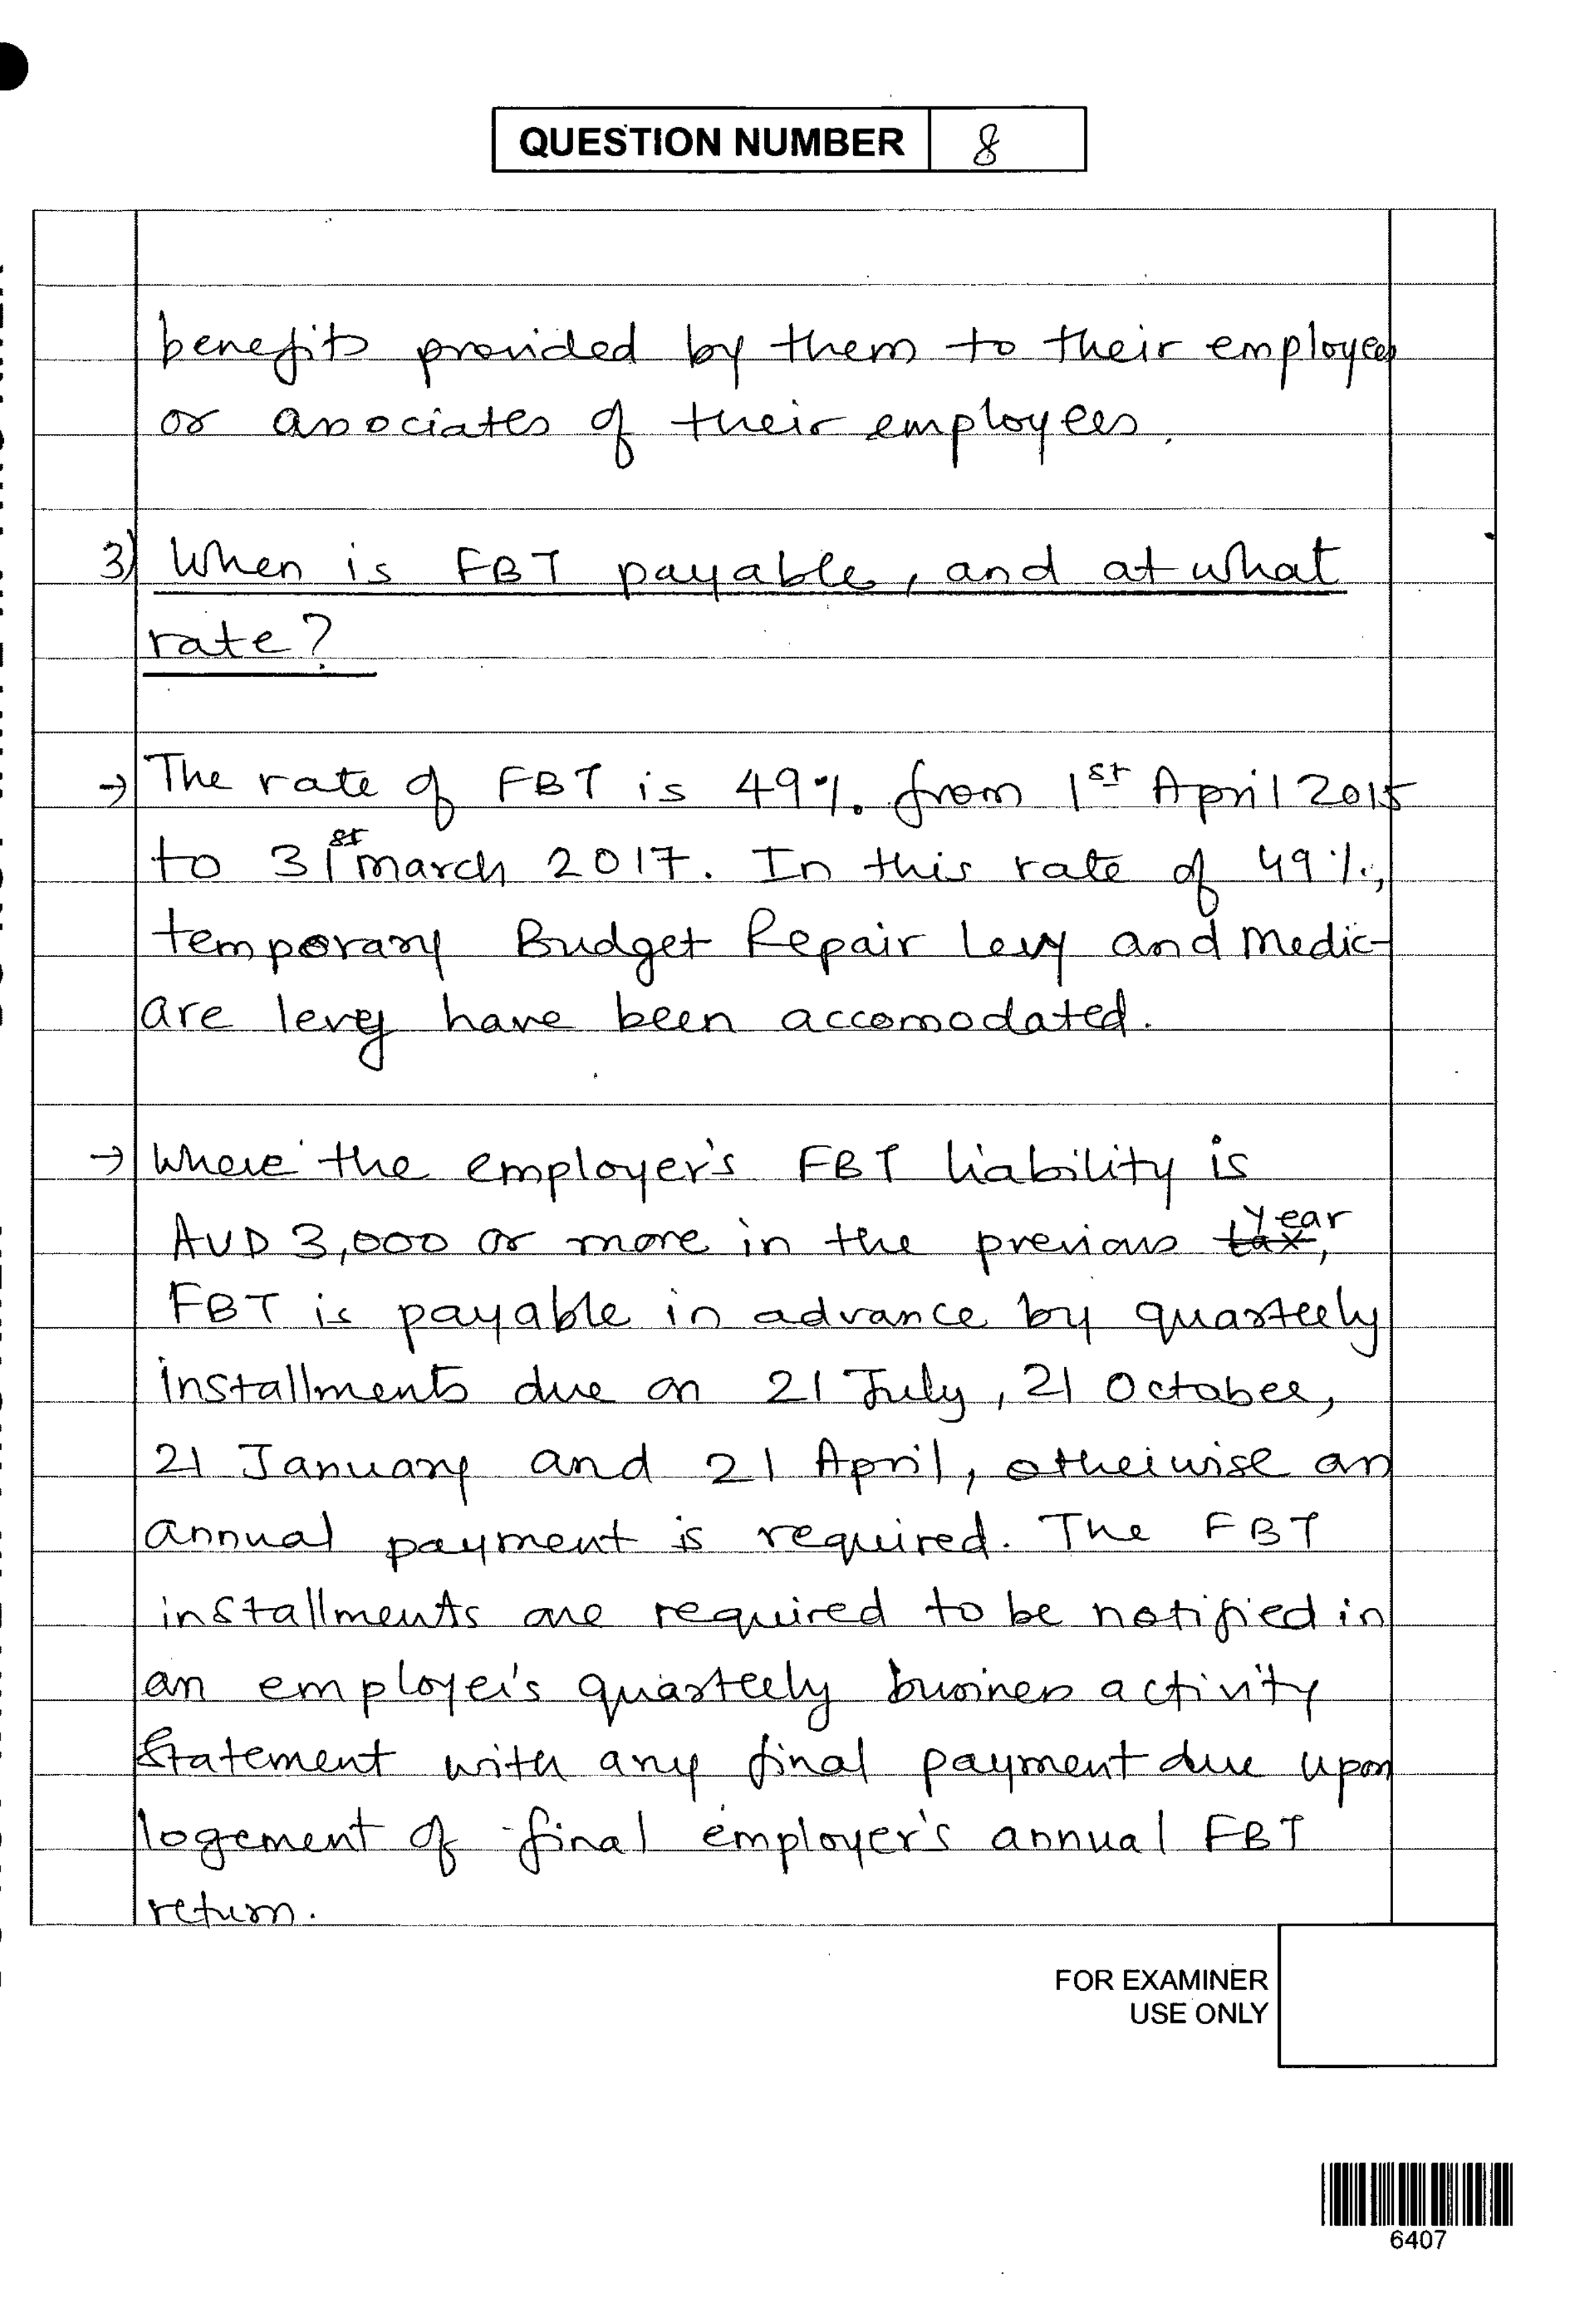 QUESTION NUMBER 8
benefits provided by them to their employees
or associates of their employees.
3) When is FBT payable, and at what
rate?
→ The rate of FBT is 49% from 1st April 2015
to 31st march 2017. In this rate of 49%,
temporary Budget Repair Levy and Medic-
are levy have been accomodated.
→ Where the employer's FBT liability is
AUD 3,000 or more in the previous tax year,
FBT is payable in advance by quarterly
installments due on 21 July, 21 October,
21 January and 21 April, otherwise an
annual payment is required. The FBT
installments are required to be notified in
an employer's quarterly business activity
Statement with any final payment due upon
logement of final employer's annual FBT
return.
FOR EXAMINER
USE ONLY
6407